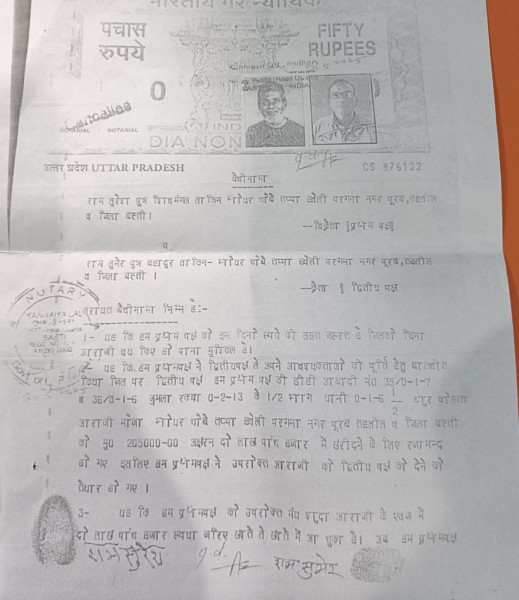 भारतीय गैर न्यायिक
पचास
रुपये
FIFTY
RUPEES
0
Cancelled
NOTARIAL NOTARIAL
IND
DIA NON
उत्तर प्रदेश UTTAR PRADESH
CS 876122
बैयीनामा
राम सुरेश पुत्र शिवमंगल साकिन पांडे तप्पा हवेली परगना नगर पूरब, तहसील
व जिला बस्ती।
--विक्रेता प्रथम पक्ष
व
राम सुमेर पुत्र बहादुर साकिन- पांडे तप्पा हवेली परगना नगर पूरब, तहसील
व जिला बस्ती ।
--क्रेता द्वितीय पक्ष
NOTARY
BASTI
बैयीनामा निम्न है:-
1- यह कि हम प्रथम पक्ष को इन दिनों रूपये की सख्त जरूरत है जिसको बिना
आराजी बय किए हो पाना मुश्किल है।
2- यह कि हम प्रथमपक्ष ने द्वितीयपक्ष से अपने आवश्यकताओं की पूर्ति हेतु बातचीत
किया जिस पर द्वितीय पक्ष हम प्रथम पक्ष की आबादी नं0 35/0-1-7
व 36/0-1-6 जुमला रकबा 0-2-13 के 1/2 भाग यानी 0-1-6 1/2
आराजी मौजा पांडे तप्पा हवेली परगना नगर पूरब तहसील व जिला बस्ती
को मु0 205000-00 अक्षरन दो लाख पांच हजार में खरीदने के लिए रजामन्द
हो गए इसलिए हम प्रथमपक्ष ने उपरोक्त आराजी को द्वितीय पक्ष को देने को
तैयार हो गए ।
3- यह कि हम प्रथमपक्ष को उपरोक्त शुदा आराजी के एवज में
दो लाख पांच हजार रूपया जरिए खाते से खाते में आ चुका है। अब हम प्रथमपक्ष
राम सुरेश
राम सुमेर